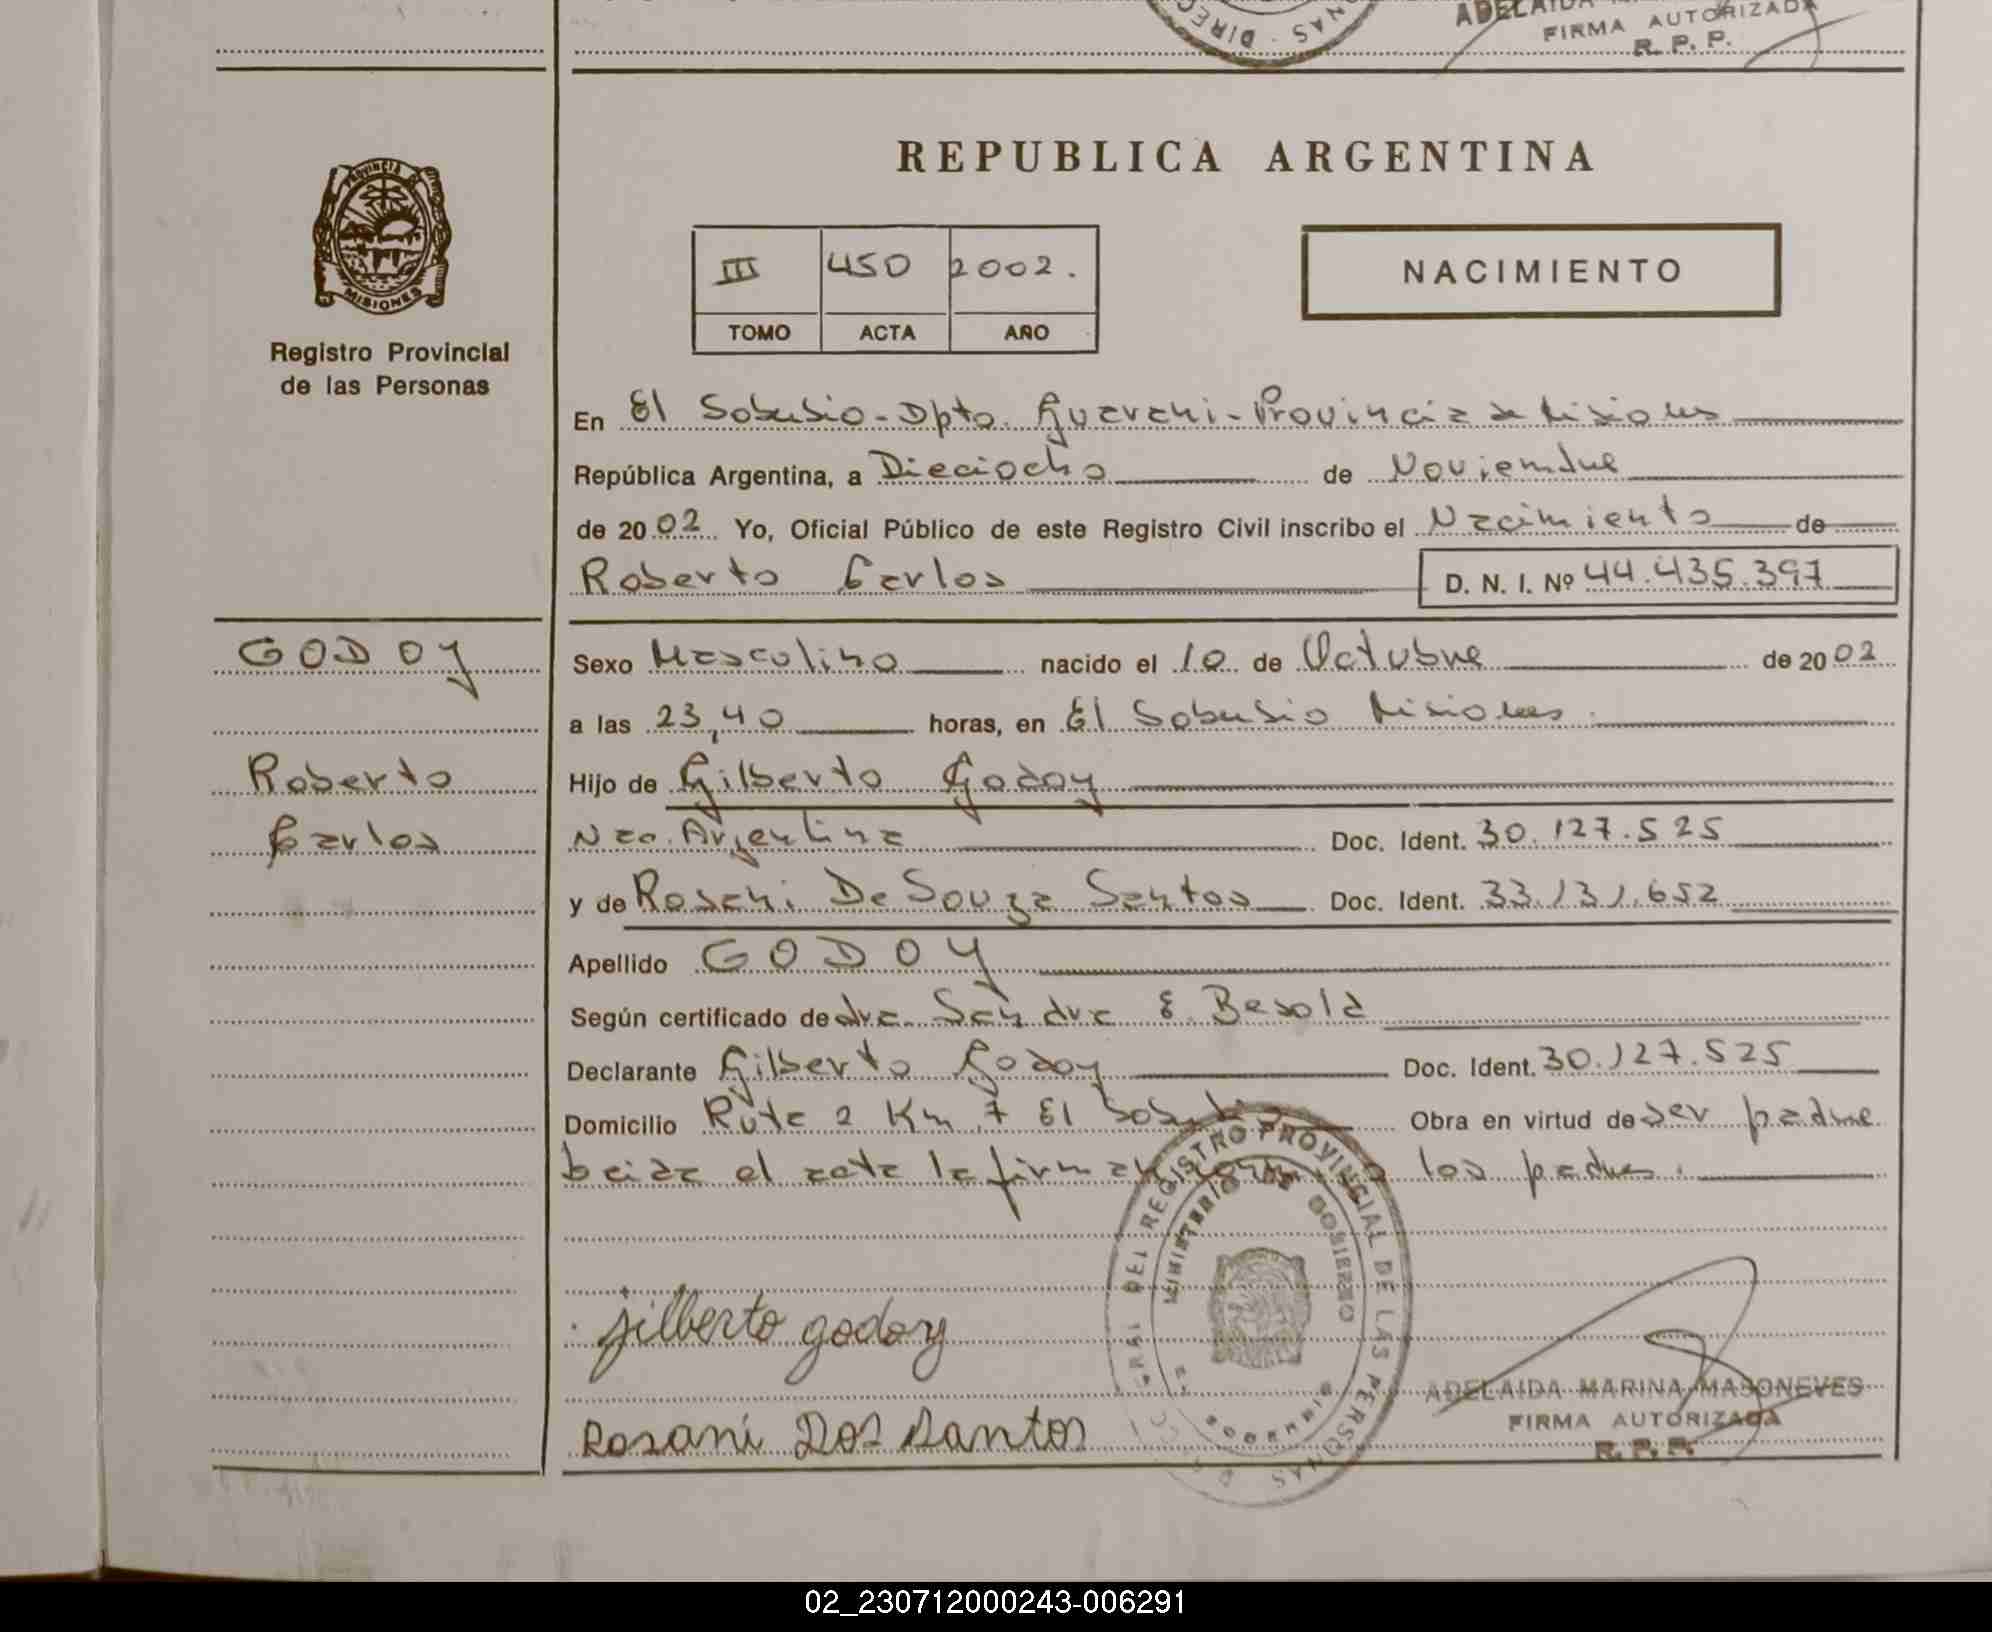 NAS - DIREC
ADELAIDA
FIRMA AUTORIZADA
R. P. P.
PROVINCIA DE
MISIONES
Registro Provincial
de las Personas
REPUBLICA ARGENTINA
III 450 2002.
TOMO ACTA AÑO
NACIMIENTO
En El Soberbio - Dpto. Guarani - Provincia de Misiones
República Argentina, a Dieciocho de Noviembre
de 20 02 Yo, Oficial Público de este Registro Civil inscribo el Nacimiento de
Roberto Carlos D. N. I. Nº 44.435.397
GODOY
Roberto
Carlos
Sexo Masculino nacido el 10 de Octubre de 20 02
a las 23,40 horas, en El Soberbio Misiones.
Hijo de Gilberto Godoy
Nac. Argentina Doc. Ident. 30.127.525
y de Rosani De Souza Santos Doc. Ident. 33.131.652
Apellido GODOY
Según certificado de dra. Sandra E. Besold
Declarante Gilberto Godoy Doc. Ident. 30.127.525
Domicilio Ruta 2 Km 7 El Soberbio Obra en virtud de ser padre
Leida el acta la firman los padres.
DEL REGISTRO PROVINCIAL DE LAS PERSONAS
MINISTERIO DE GOBIERNO
gilberto godoy
Rosani Dos Santos
ADELAIDA MARINA MASONEVES
FIRMA AUTORIZADA
R. P. P.
02_230712000243-006291